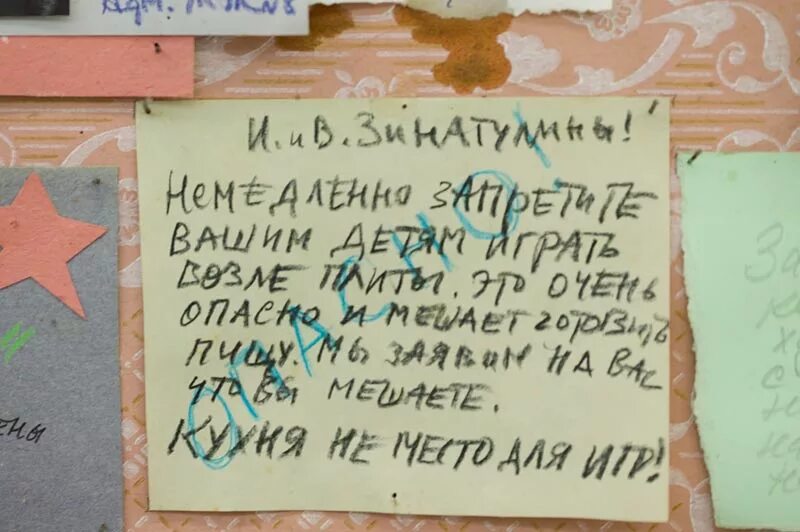 Адм.
И. и В. ЗИНАТУЛИНЫ!
НЕМЕДЛЕННО ЗАПРЕТИТЕ
ВАШИМ ДЕТЯМ ИГРАТЬ
ВОЗЛЕ ПЛИТЫ. ЭТО ОЧЕНЬ
ОПАСНО И МЕШАЕТ ГОТОВИТЬ
ПИЩУ. МЫ ЗАЯВИМ НА ВАС
ЧТО ВЫ МЕШАЕТЕ.
КУХНЯ НЕ МЕСТО ДЛЯ ИГР!
ОПАСНО!